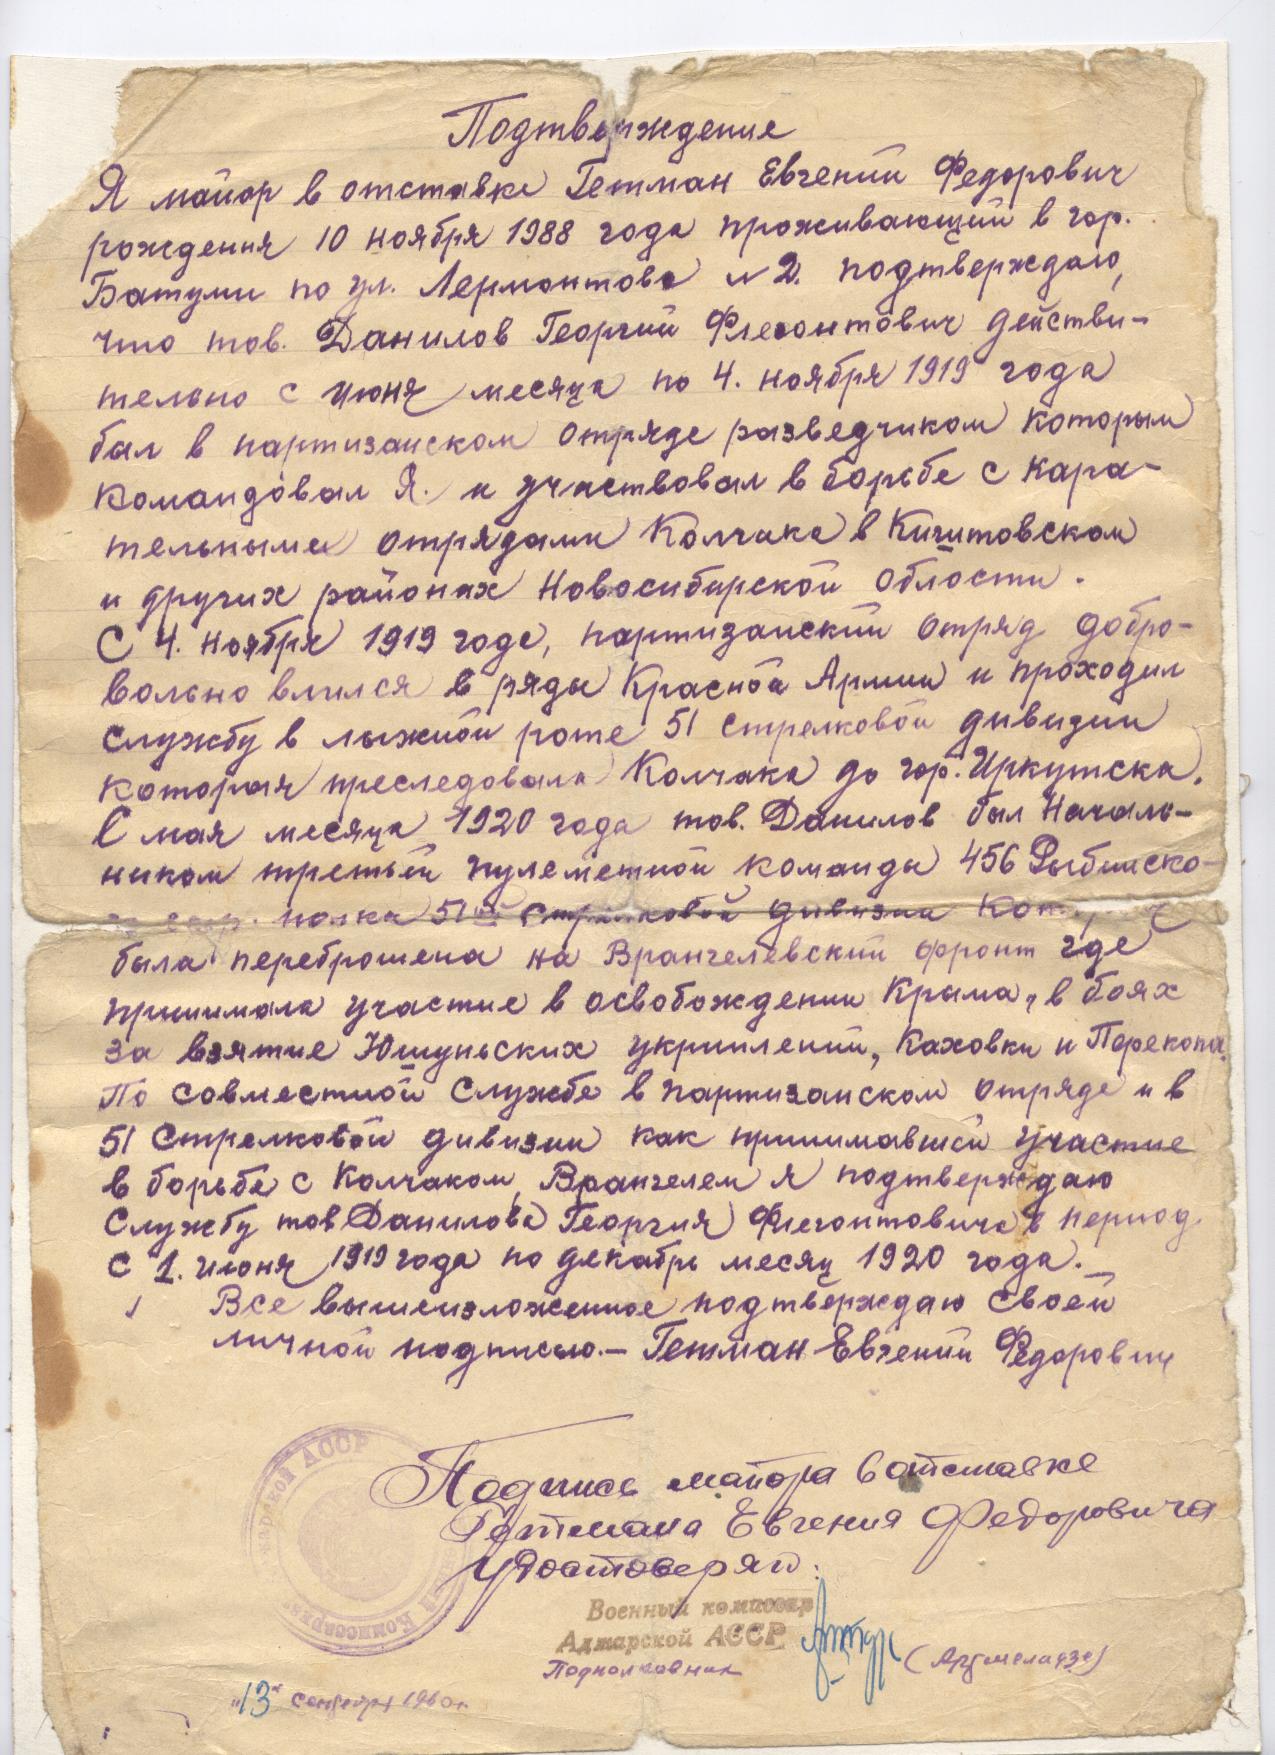 Подтверждение
Я майор в отставке Гетман Евгений Федорович
рождения 10 ноября 1988 года проживающий в гор.
Батуми по ул. Лермонтова N 2. подтверждаю,
что тов. Данилов Георгий Флегонтович действи-
тельно с июня месяца по 4. ноября 1919 года
был в партизанском отряде разведчиком которым
командовал Я. и участвовал в борьбе с кара-
тельными отрядами Колчака в Кичитовском
и других районах Новосибирской области.
С 4. ноября 1919 года, партизанский отряд добро-
вольно влился в ряды Красной Армии и проходил
службу в лыжной роте 51 стрелковой дивизии
которая преследовала Колчака до гор. Иркутска.
С мая месяца 1920 года тов. Данилов был Началь-
ником третьей пулеметной команды 456 Рыбинско-
полка 51ой стрелковой дивизии
была переброшена на Врангелевский фронт где
принимала участие в освобождении Крыма, в боях
за взятие Юшуньских укриплений, Каховки и Перекопа.
По совместной службе в партизанском отряде и в
51 Стрелковой дивизии как принимавший участие
в борьбе с Колчаком, Врангелем я подтверждаю
Службу тов Данилова Георгия Флегонтовича в период
с 1. июня 1919 года по декабрь месяц 1920 года.
Все вышеизложенное подтверждаю своей
личной подписью.- Гетман Евгений Федорович
Подпись майора в отставке
Гетмана Евгения Федоровича
удостоверяю:
Военный комиссар
Аджарской АССР
Подполковник
"13" сентября 1960 г.